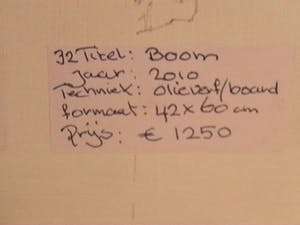 32 Titel: Boom
Jaar: 2010
Techniek: olieverf/board
formaat: 42x60 cm
Prijs: € 1250